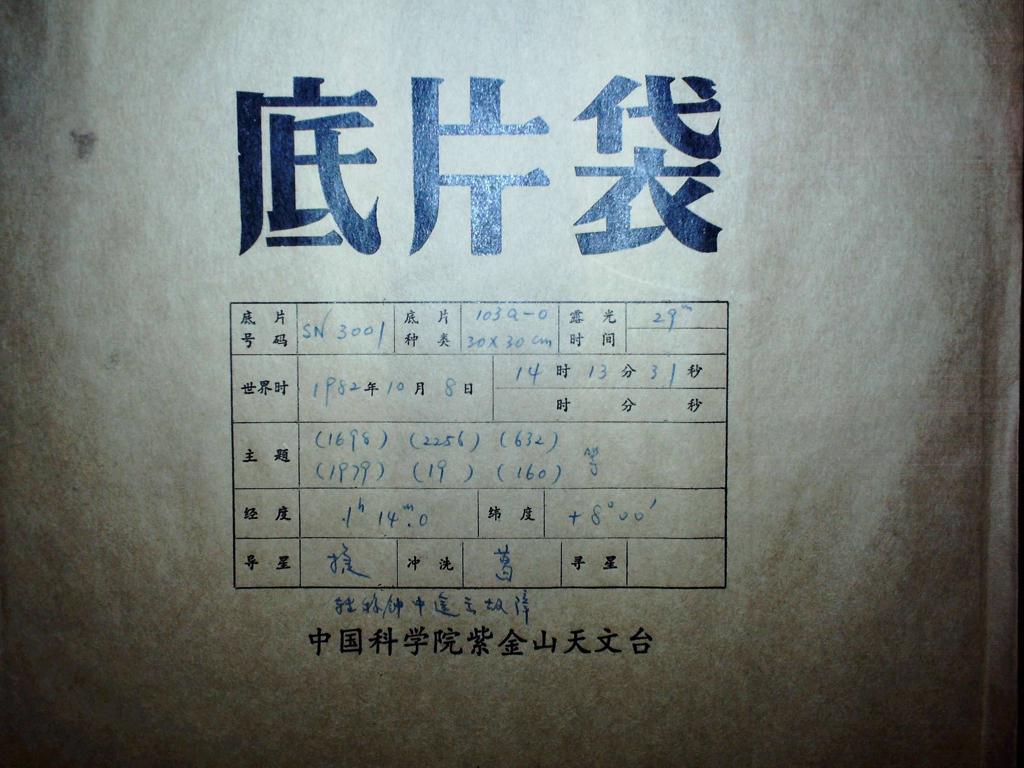 底片袋
底片号码 SN 3001 底片种类 103a-O 30×30cm 露光时间 29ᵐ
世界时 1982年10月8日 14时13分31秒
时 分 秒
主题 (1698) (2256) (632)
(1979) (19) (160) 等
经度 1ʰ 14ᵐ.0 纬度 +8°00′
导星 冲洗 葛 寻星
中途 故障
中国科学院紫金山天文台